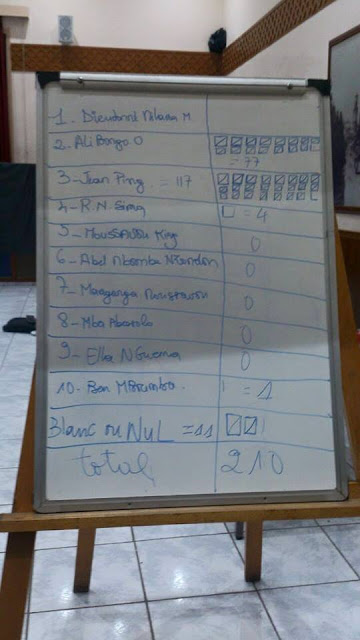 1. Dieudonné M.
2- Ali Bongo O = 77
3- Jean Ping = 117
4- R.N. Sima = 4
5- Moussavou King 0
6- Abel Mbombe Nzondou 0
7- 0
8- Mba Abessole 0
9- Ella Nguema 0
10- Ben Mboumba. 1 = 1
Blanc ou Nul = 11
total 210